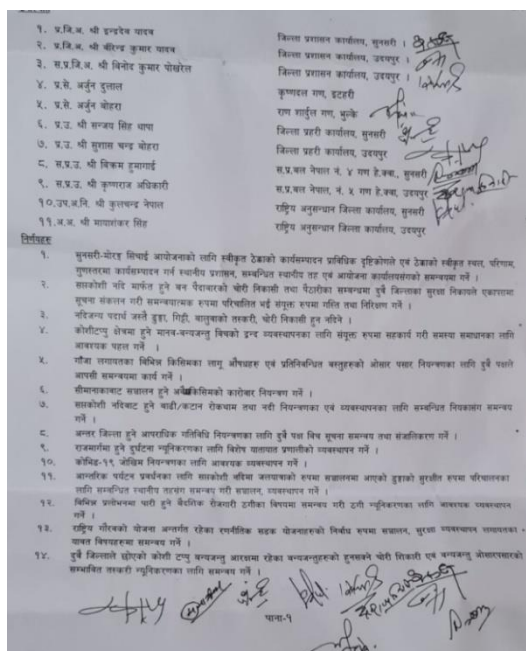 १. प्र.जि.अ. श्री इन्द्रदेव यादव
जिल्ला प्रशासन कार्यालय, सुनसरी ।
२. प्र.जि.अ. श्री बीरेन्द्र कुमार यादव
जिल्ला प्रशासन कार्यालय, उदयपुर ।
३. स.प्र.जि.अ. श्री विनोद कुमार पोखरेल
जिल्ला प्रशासन कार्यालय, उदयपुर
४. प्र.से. अर्जुन दुलाल
कृष्णदल गण, इटहरी
५. प्र.से. अर्जुन बोहरा
राण शार्दुल गण, भुल्के
६. प्र.उ. श्री सन्जय सिंह थापा
जिल्ला प्रहरी कार्यालय, सुनसरी
७. प्र.उ. श्री सुशास चन्द्र बोहरा
जिल्ला प्रहरी कार्यालय, उदयपुर
८. स.प्र.उ. श्री बिक्रम हुमागाई
स.प्र.बल नेपाल नं. ४ गण हे.क्वा, सुनसरी
९. स.प्र.उ. श्री कृष्णराज अधिकारी
स.प्र.बल नेपाल, नं. ५ गण हे.क्वा, उदयपुर
१०.उप.अ.नि. श्री कुलचन्द्र नेपाल
राष्ट्रिय अनुसन्धान जिल्ला कार्यालय, सुनसरी
११.अ.अ. श्री मायाशंकर सिंह
राष्ट्रिय अनुसन्धान जिल्ला कार्यालय, उदयपुर
निर्णयहरु
१. सुनसरी-मोरङ सिचाई आयोजनाको लागि स्वीकृत ठेक्काको कार्यसम्पादन प्राविधिक दृष्टिकोणले एवं ठेक्काको स्वीकृत स्थल, परिणाम,
गुणस्तरमा कार्यसम्पादन गर्न स्थानीय प्रशासन, सम्बन्धित स्थानीय तह एवं आयोजना कार्यालयसंगको समन्वयमा गर्ने ।
२. सप्तकोशी नदि मार्फत हुने वन पैदावारको चोरी निकासी तथा पैठारीका सम्बन्धमा दुवै जिल्लाका सुरक्षा निकायले एकआपसमा
सूचना संकलन गरी समन्वयात्मक रुपमा परिचालित भई संयुक्त रुपमा गस्ति तथा निरिक्षण गर्ने ।
३. नदिजन्य पदार्थ जस्तै ढुङ्गा, गिट्टी, बालुवाको तस्करी, चोरी निकासी हुन नदिने ।
४. कोशीटप्पु क्षेत्रमा हुने मानव-बन्यजन्तु बिचको द्वन्द व्यवस्थापनका लागि संयुक्त रुपमा सहकार्य गरी समस्या समाधानका लागि
आवश्यक पहल गर्ने ।
५. गाँजा लगायतका विभिन्न किसिमका लागू औषधहरु एवं प्रतिबन्धित बस्तुहरुको ओसार पसार नियन्त्रणका लागि दुवै पक्षले
आपसी समन्वयमा कार्य गर्ने ।
६. सीमानाकाबाट सञ्चालन हुने अवैध किसिमको कारोबार नियन्त्रण गर्ने ।
७. सप्तकोशी नदिबाट हुने बाढी/कटान रोकथाम तथा नदी नियन्त्रणका एवं व्यवस्थापनका लागि सम्बन्धित निकायसंग समन्वय
गर्ने ।
८. अन्तर जिल्ला हुने आपराधिक गतिविधि नियन्त्रणका लागि दुवै पक्ष बिच सूचना समन्वय तथा संजालिकरण गर्ने ।
९. राजमार्गमा हुने दुर्घटना न्यूनिकरणका लागि विशेष यातायात प्रणालीको व्यवस्थापन गर्ने ।
१०. कोभिड-१९ जोखिम नियन्त्रणका लागि आवश्यक व्यवस्थापन गर्ने ।
११. आन्तरिक पर्यटन प्रवर्धनका लागि सप्तकोशी नदिमा जलयात्राको रुपमा सञ्चालनमा आएको डुङ्गाको सुरक्षीत रुपमा परिचालनका
लागि सम्बन्धित स्थानीय तहसंग समन्वय गरी सञ्चालन, व्यवस्थापन गर्ने ।
१२. विभिन्न प्रलोभनमा पारी हुने बैदेशिक रोजगारी ठगीका बिषयमा समन्वय गरी ठगी न्यूनिकरणका लागि आवश्यक व्यवस्थापन
गर्ने ।
१३. राष्ट्रिय गौरवको योजना अन्तर्गत रहेका रणनीतिक सडक योजनाहरुको निर्वाध रुपमा सञ्चालन, सुरक्षा व्यवस्थापन लगायतका
यावत बिषयहरुमा समन्वय गर्ने ।
१४. दुवै जिल्लाले छोएको कोशी टप्पु बन्यजन्तु आरक्षमा रहेका बन्यजन्तुहरुको हुनसक्ने चोरी शिकारी एवं बन्यजन्तु ओसारपसारको
सम्भावित तस्करी न्यूनिकरणका लागि समन्वय गर्ने ।
पाना-१